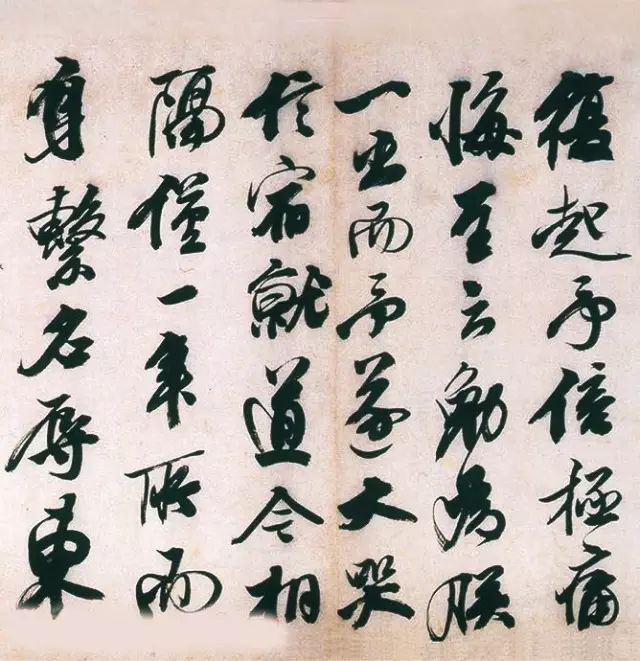 起予信極痛
悔至云勉為朕
一出而予遂大哭
於宿就道今相
隔僅一年所而
身繫名辱東